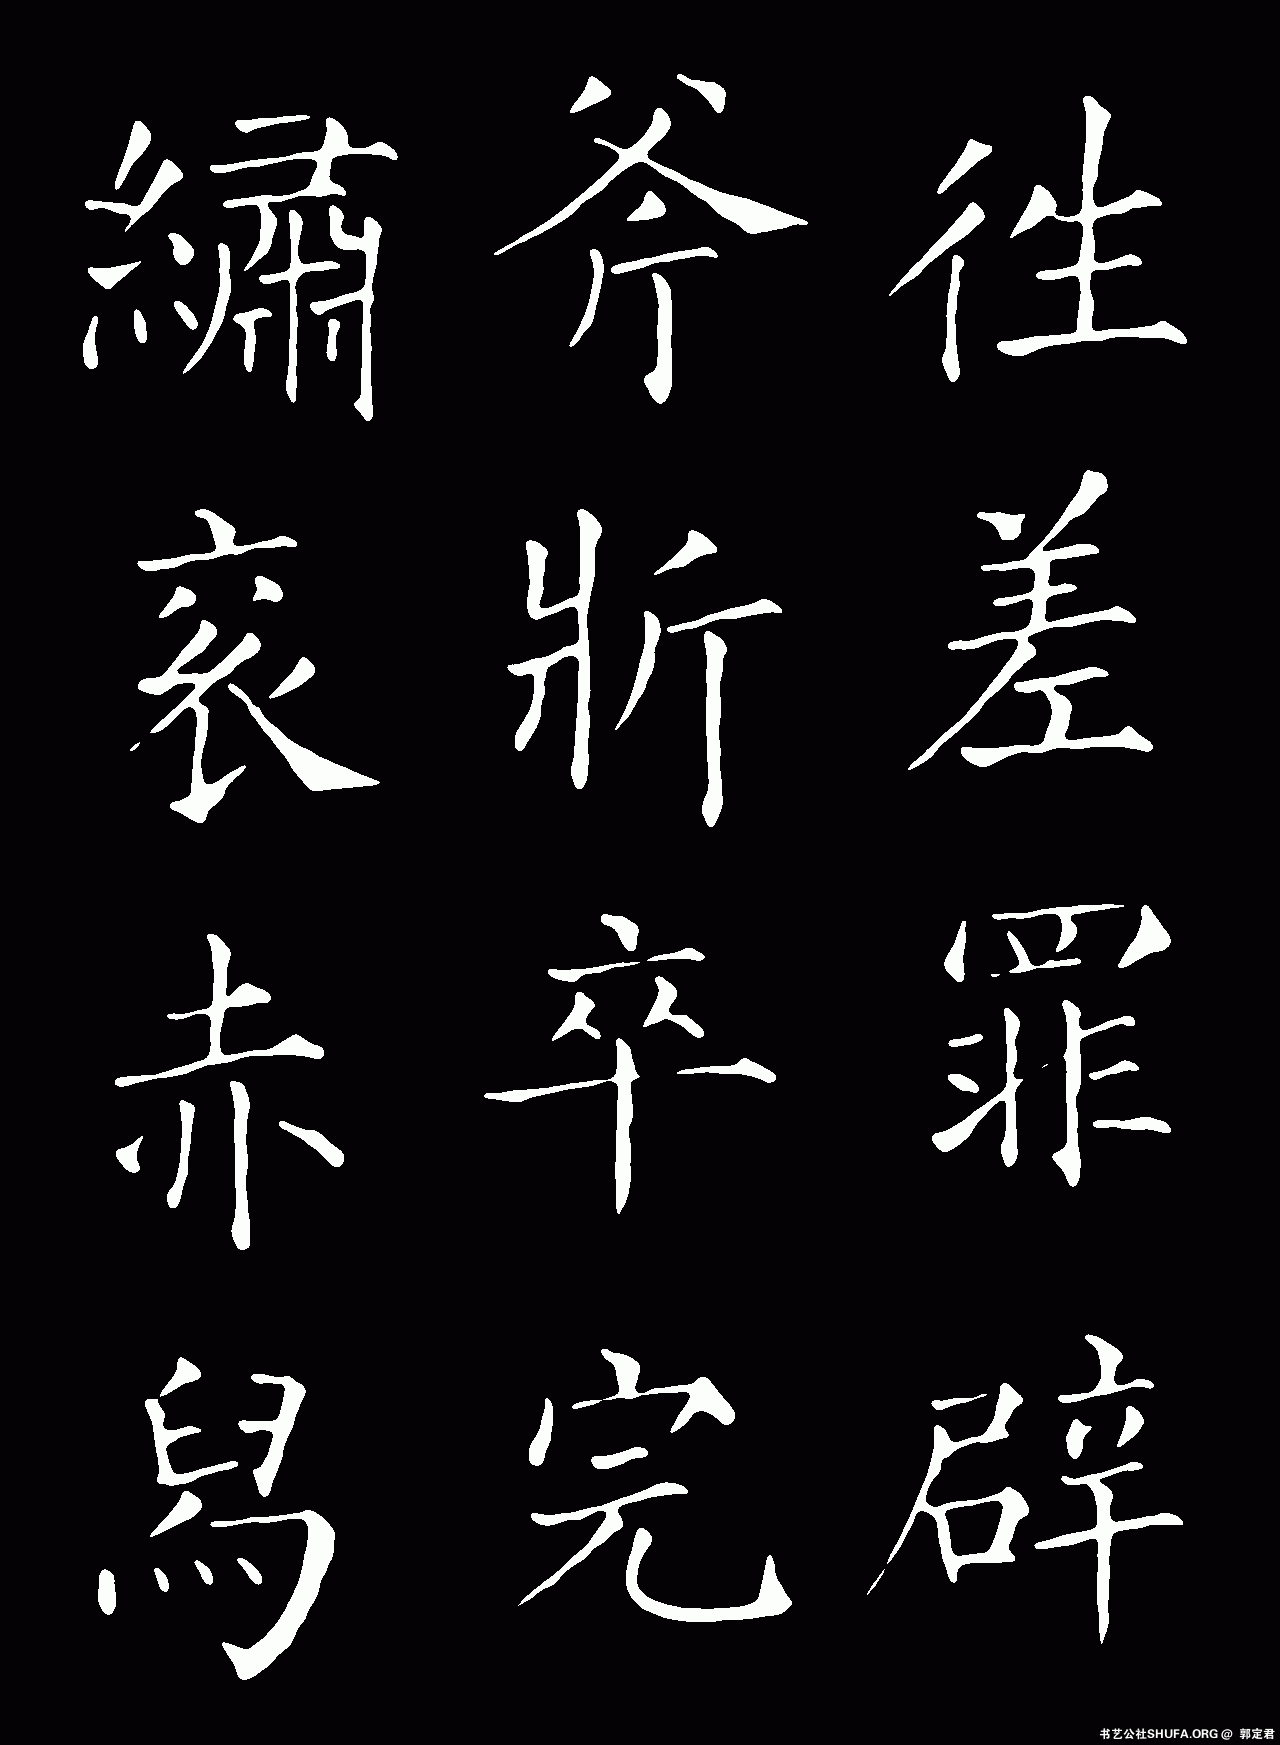 往差罪辟
斧斨卒完
繡衮赤舄
书艺公社SHUFA.ORG @ 郭定君